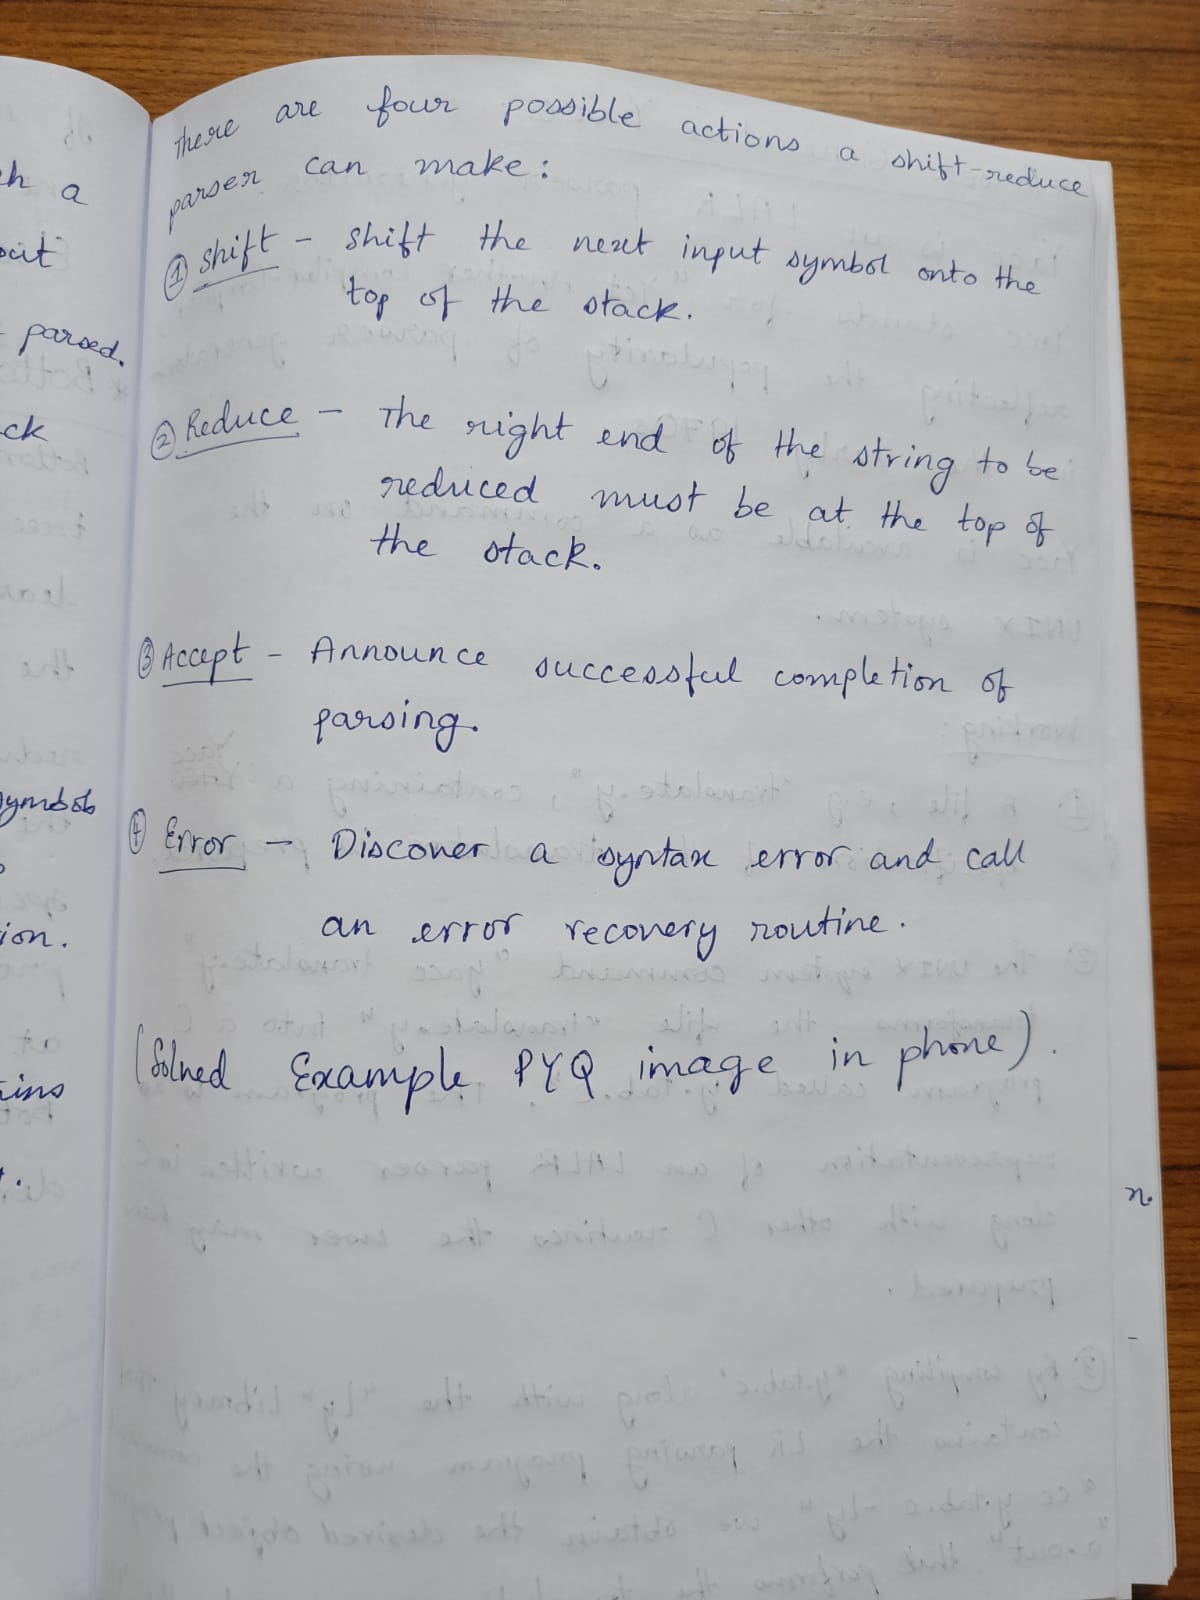 There are four possible actions a shift-reduce
parser can make:
① Shift - Shift the next input symbol onto the
top of the stack.
② Reduce - The right end of the string to be
reduced must be at the top of
the stack.
③ Accept - Announce successful completion of
parsing.
④ Error - Discover a syntax error and call
an error recovery routine.
(Solved Example PYQ image in phone).
a
parsed.
ck
symbols
ion.
n.